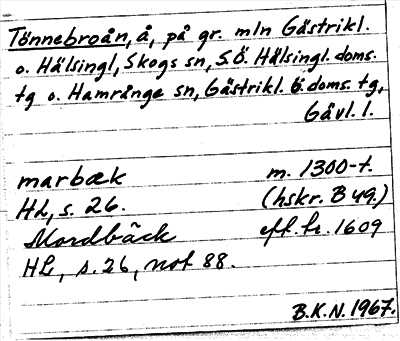 Tönnebroån, å, på gr. mln Gästrikl.
o. Hälsingl, Skogs sn, S.Ö. Hälsingl. doms.
tg o. Hamrånge sn, Gästrikl. ö. doms. tg,
Gävl. l.
marbæk m. 1300-t.
HL, s. 26. (hskr. B 49.)
Mordbäck eft. tr. 1609
HL, s. 26, not 88.
B.K.N. 1967.